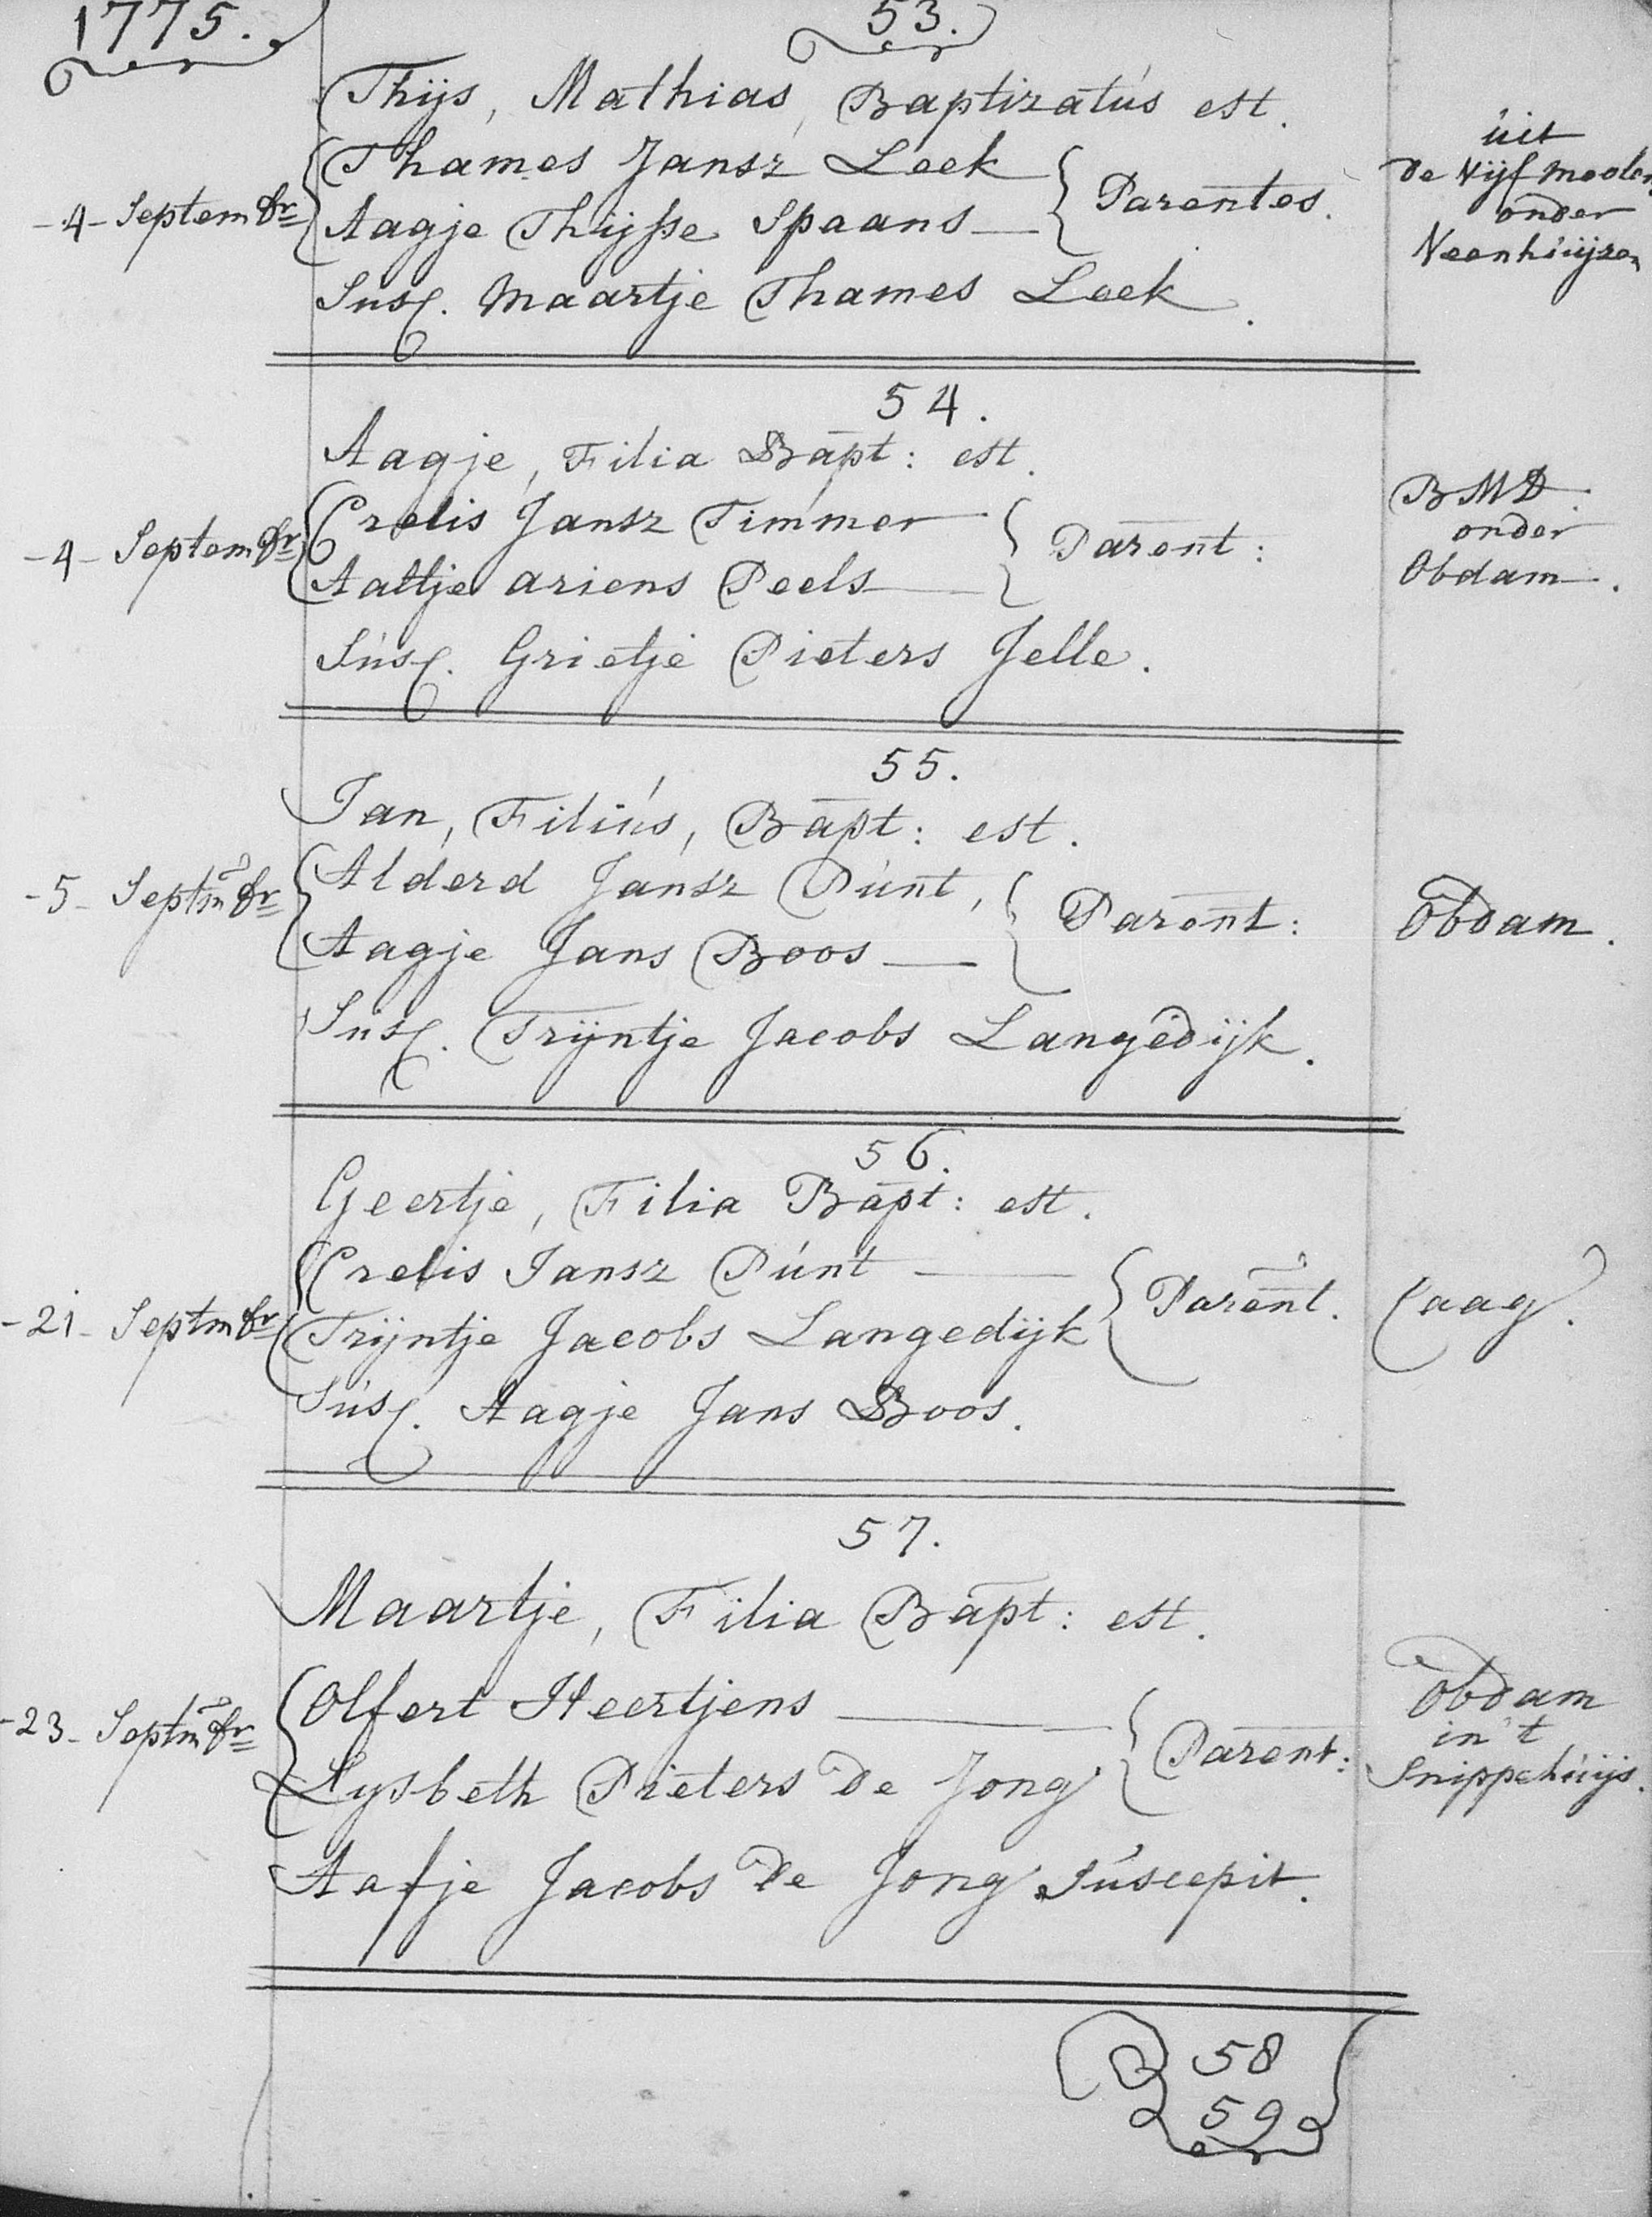 1775.
53.
Thijs, Mathias, Baptizatús est.
Thames Jansz Leek
-4- Septembr Aagje Thijsse Spaans — Parentes.
Susc. Maartje Thames Leek.
úit
de Vijf moolen
onder
Veenhúijzen
54.
Aagje, Filia Bapt: est.
Crelis Jansz Timmer
-4- Septembr Aaltje ariens Peels — Parent:
Súsc. Grietje Pieters Jelle.
BMD.
onder
Obdam.
55.
Jan, Filiús, Bapt: est.
-5- Septmbr Alderd Jansz Púnt, Parent:
Aagje Jans Boos —
Susc. Trijntje Jacobs Langedijk.
Obdam.
56.
Geertje, Filia Bapt: est.
Crelis Jansz Púnt —
-21- Septmbr Trijntje Jacobs Langedijk Parent.
Súsc. Aagje Jans Boos.
Caag.
57.
Maartje, Filia Bapt: est.
-23- Septmbr Olfert Heertjens — Parent:
Lysbeth Pieters De Jong
Aafje Jacobs De Jong Súscepit.
Obdam
in 't
Snippehúijs.
58
59